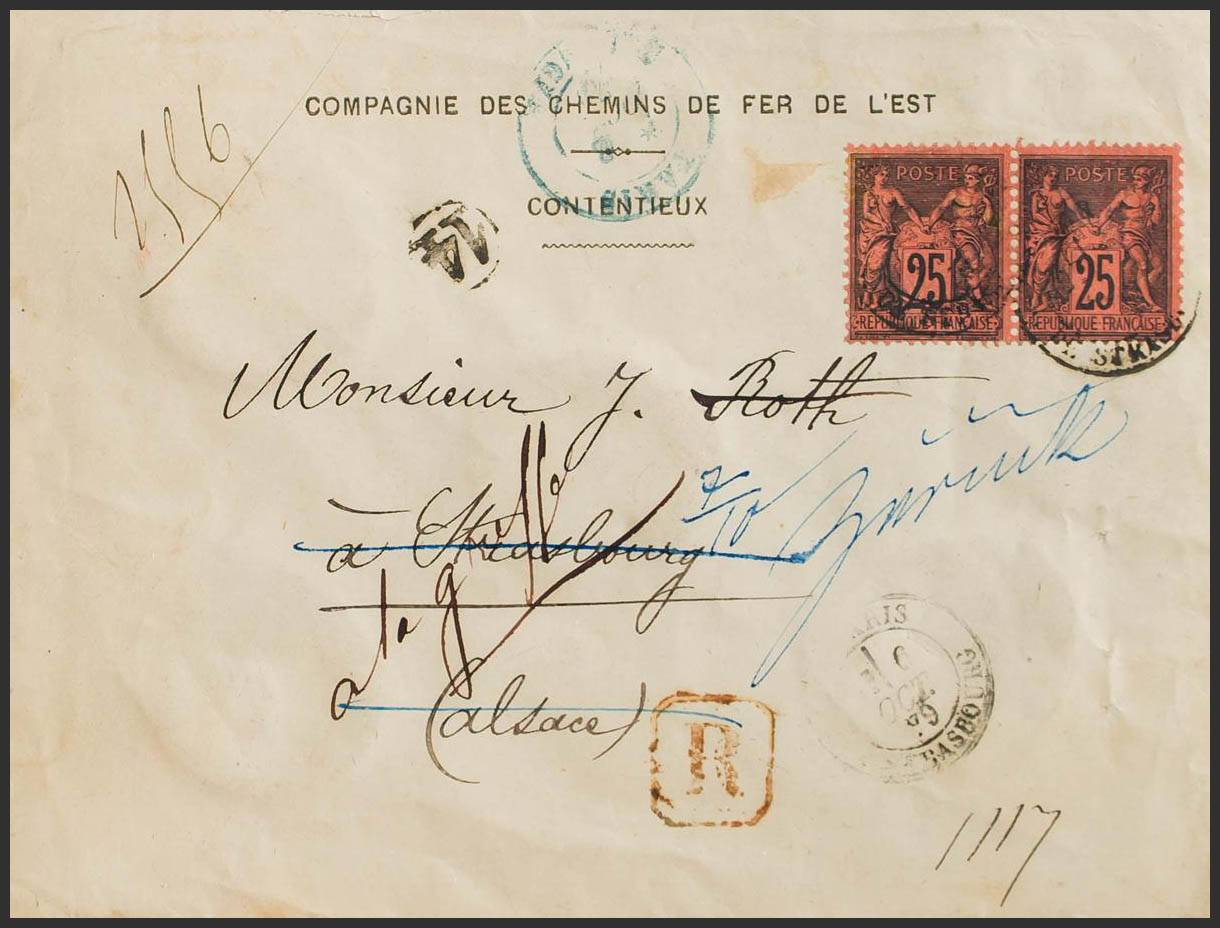 2556
COMPAGNIE DES CHEMINS DE FER DE L'EST
PARIS
CONTENTIEUX
POSTE
25
REPUBLIQUE FRANÇAISE
POSTE
25
REPUBLIQUE FRANÇAISE
Monsieur J. Roth
à Strasbourg
7/10 Zurück
(alsace)
R
PARIS
6
OCT
1117